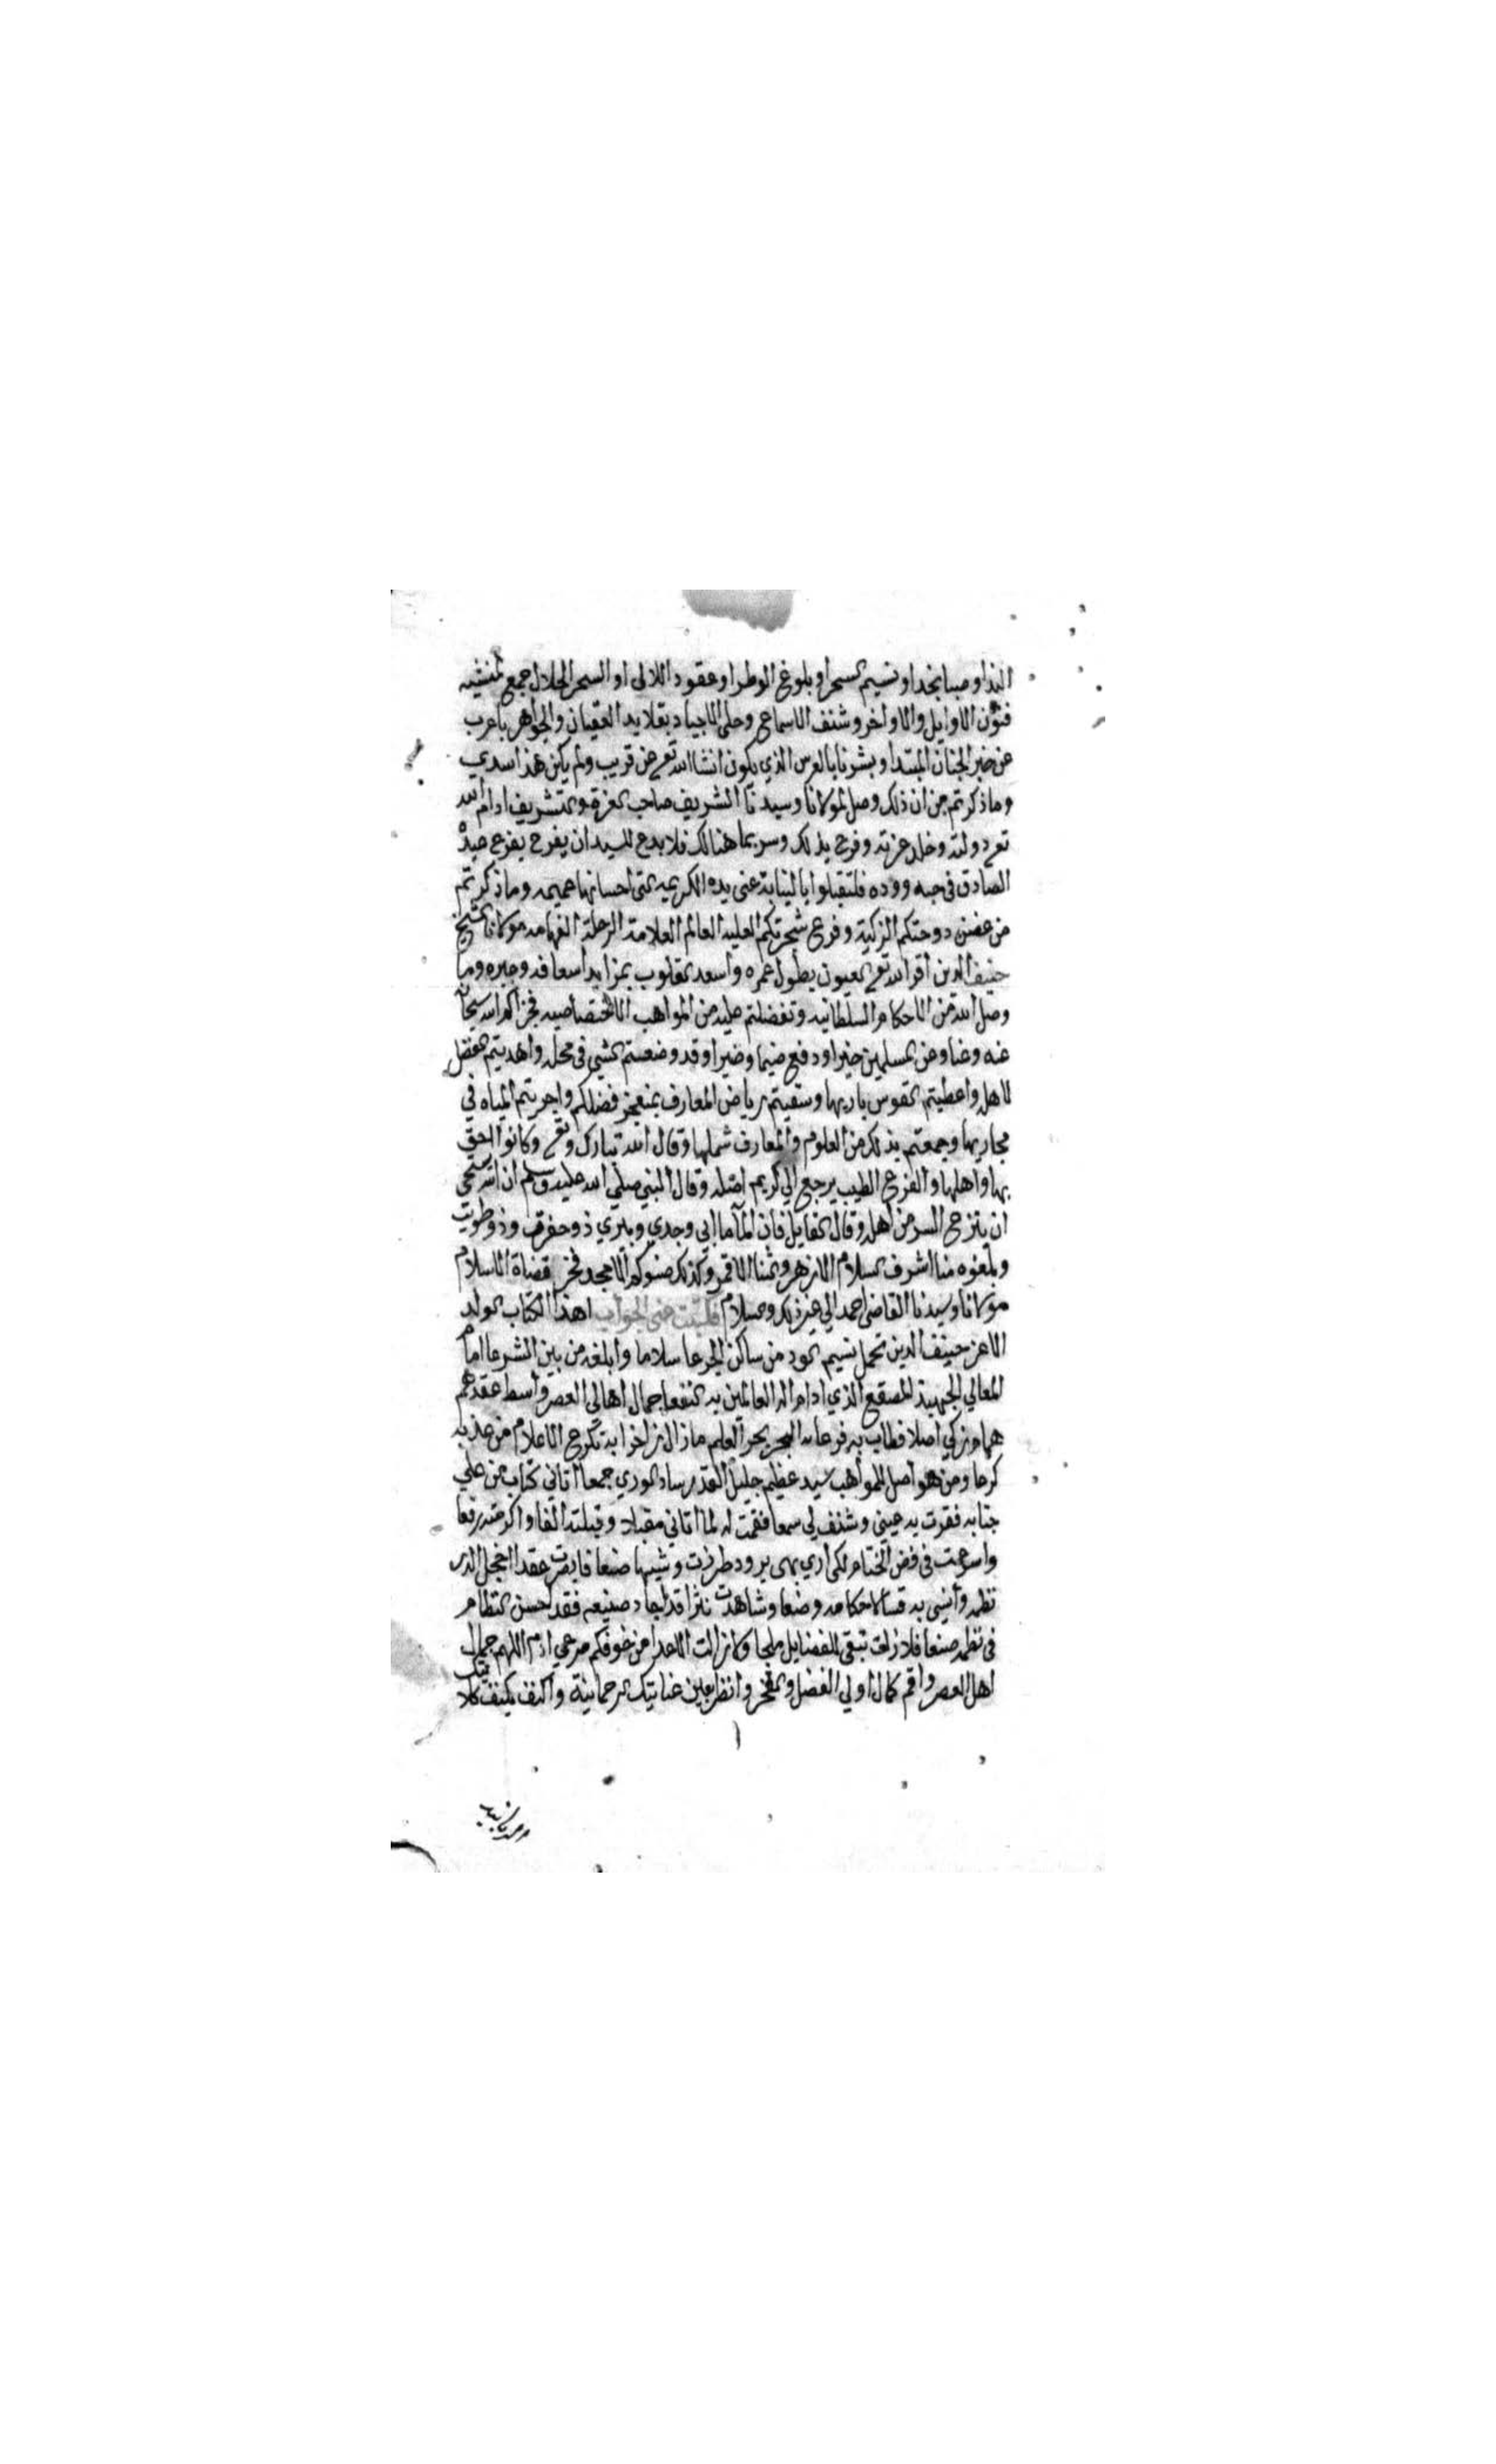 الندا وصبا نجد او نسيم السحر او بلوغ الوطر او عقود اللالى او السحر الحلال جمع لمنشيه
فنون الاوايل والاواخر وشنف الاسماع وحلى الاجياد بقلايد العقيان والجواهر باعرب
عن خبر الجنان المبتدا وبشرنا بالعرس الذي يكون انشا الله تع عن قريب ولم يكن هذا سدي
وما ذكرتم من ان ذلك وصل لمولانا وسيدنا الشريف صاحب العزة والتشريف ادام الله
تع دولته وخلد عزته وفرح بذلك وسر بما هنالك فلا بدع للسيد ان يفرح بفرح عبده
الصادق في حبه ووده فلتقبلوا بالنيابة عني يده الكريمه التى احسانها عميمه وما ذكرتم
من غصن دوحتكم الزكية وفرع شجرتكم العليه العالم العلامة الرحلة الفهامه مولانا الشيخ
حنيف الدين اقر الله تع العيون بطول عمره واسعد القلوب بمزايد اسعافه وجبره وما
وصل اليه من الاحكام السلطانيه وتفضلتم عليه من المواهب الاختصاصيه فجزاكم الله سبحانه
عنه وعنا وعن المسلمين خيرا ودفع ضيما وضيرا وقد وضعتم الشى في محله واهديتم الفضل
لاهله واعطيتم القوس باريها وسقيتم رياض المعارف بمنفجر فضلكم واجريتم المياه في
مجاريها وجمعتم بذلك من العلوم والمعارف شملها وقال الله تبارك وتع وكانوا احق
بها واهلها والفرع الطيب يرجع الي كريم اصله وقال النبي صلي الله عليه وسلم ان الله يستحي
ان ينزع السر من اهله وقال القايل فان الماما ابي وجدي وبيري ذو حفرت وذو طويت
وبلغوه منا اشرف السلام الازهر والثنا الاقمر وكذلك صنوكم الامجد فخر قضاة الاسلام
مولانا وسيدنا القاضي احمد الي غير ذلك والسلام فكتبت عني الجواب هذا الكتاب الولد
الاعز حنيف الدين تحمل نسيم الود من ساكن الجرعا سلاما وابلغه من بين الشرعا امام
المعالي الجهبذ المصقع الذي ادام اله العالمين به النفعا جمال اهالي العصر واسط عقدهم
همام زكي اصلا فطاب به فرعا هو البحر بحر العلم ما زال زاخرا به تكرع الاعلام من عذبه
كرعا ومن هو اصل للمواهب سيد عظيم جليل القدر ساد الوري جمعا اتاني كتاب من علي
جنابه فقرت به عيني وشنف لي سمعا فقمت له لما اتاني مقبلا وقبلته الفا واكرمته رفعا
واسرعت في فض الختام لكي اري بهي برود طرزت وشيها صنعا فابصرت عقدا اخجل الدر
نظمه وانسي به قسا لاحكامه وضعا وشاهدت نثرا قد اجاد صنيعه فقد احسن النظام
في نظمه صنعا فلا زلت تبقي للفضايل ملجا ولا زالت الاعدا من خوفكم صرعي ادم اللهم جمال
اهل العصر واقم كمال اولي الفضل والفخر وانظر بعين عنايتك الرحمانية واكنف بكنف كلا